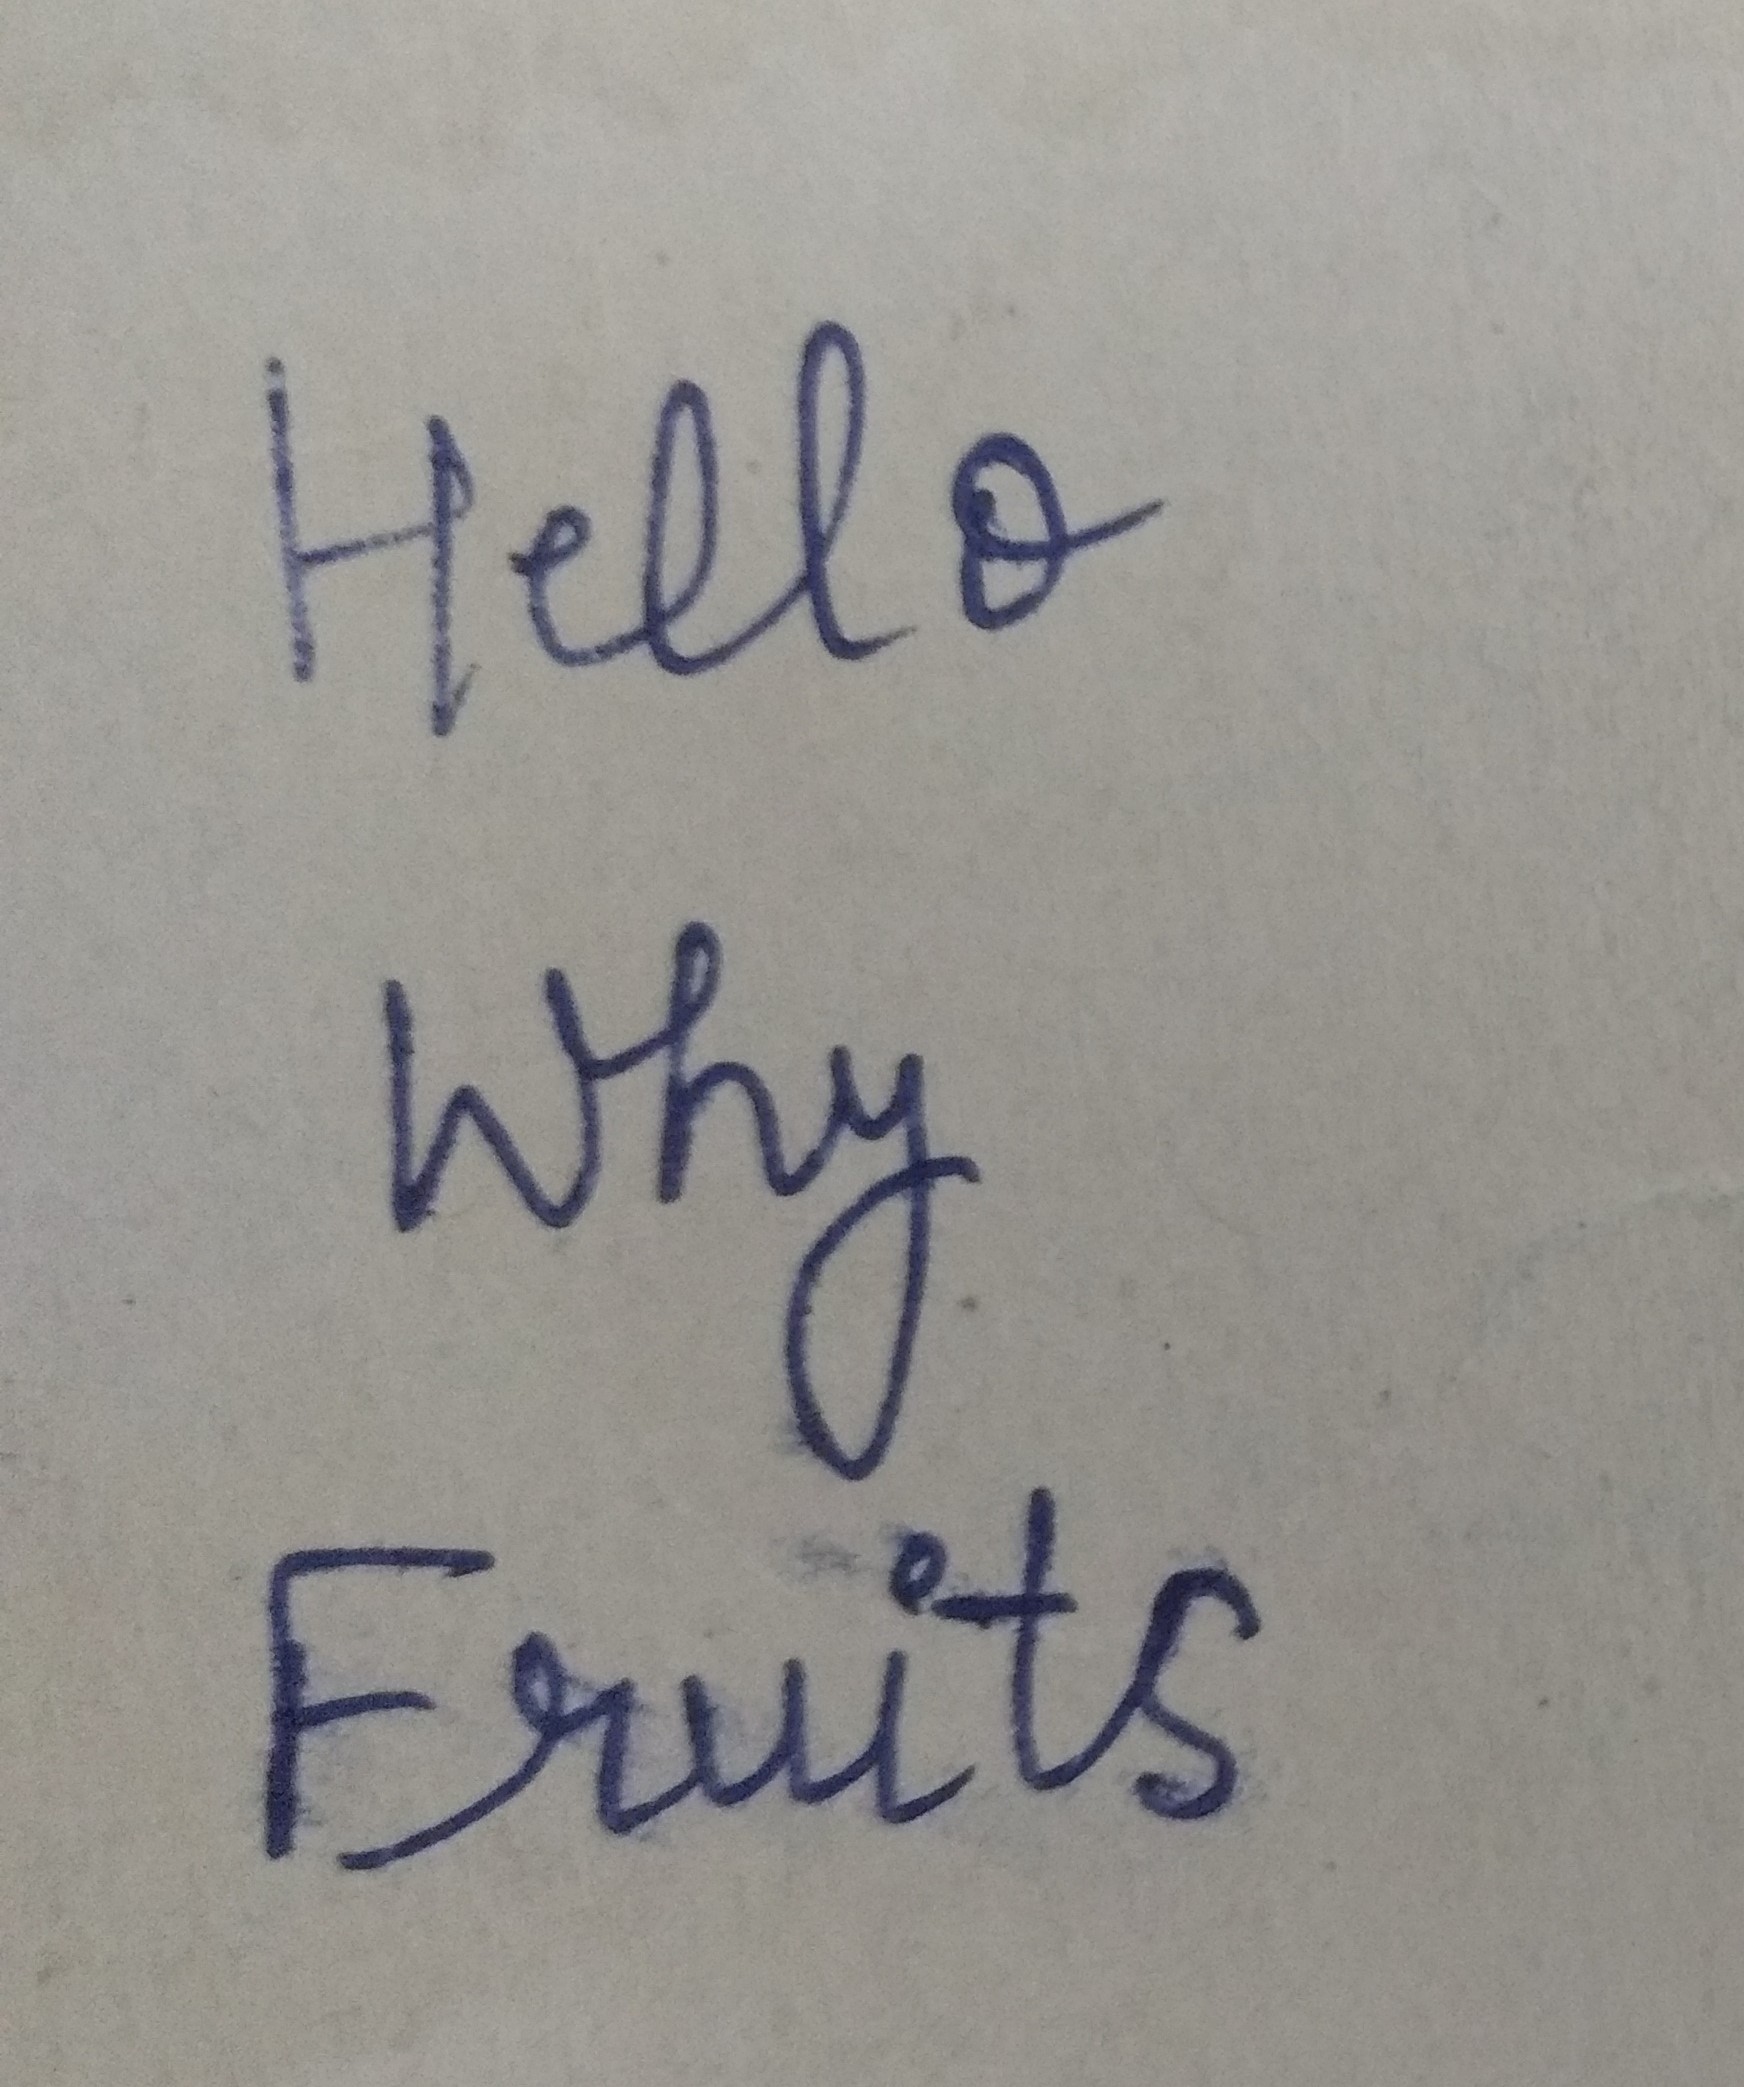 Hello
Why
Fruits